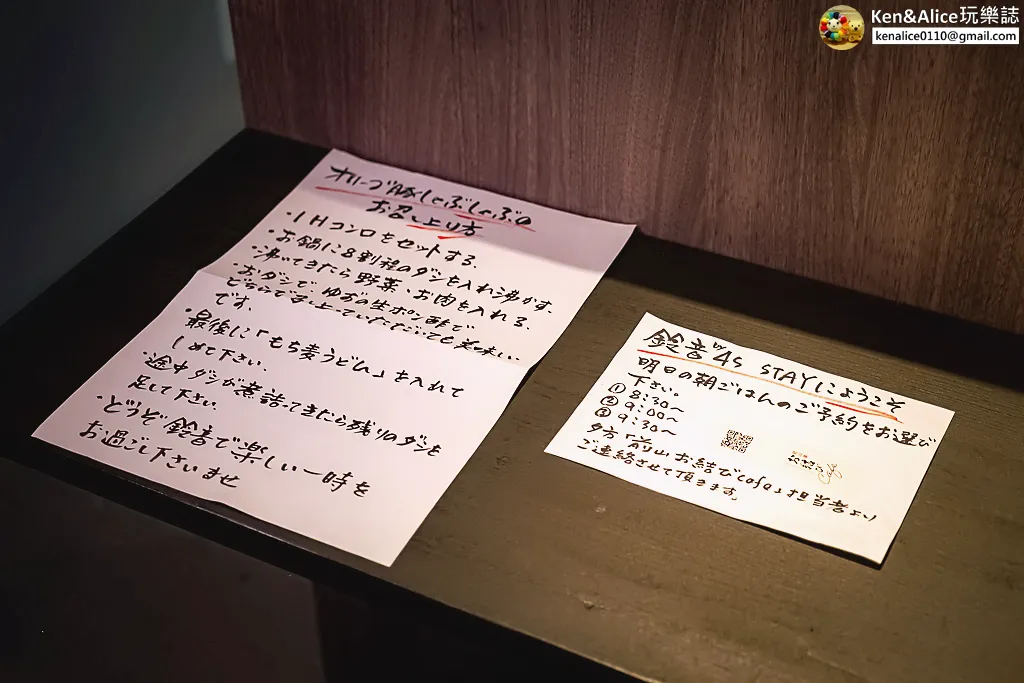 Ken&Alice玩樂誌
kenalice0110@gmail.com
オリーブ豚しゃぶしゃぶの
お召し上り方
・IHコンロをセットする、
・お鍋に8割程のダシを入れ沸かす、
・沸いてきたら野菜、お肉を入れる、
おダシで、ゆずの生ポン酢で
どちらで召し上っていただいても美味しい
です。
・最後に「もち麦うどん」を入れて
しめて下さい。
・途中ダシが煮詰ってきたら残りのダシを
足して下さい。
・どうぞ鈴音で楽しい一時を
お過ごし下さいませ
鈴音 4s STAYにようこそ
明日の朝ごはんのご予約をお選び
下さい。
① 8:30〜
② 9:00〜
③ 9:30〜
夕方「前山お結びcafe」担当者より
ご連絡させて頂きます。